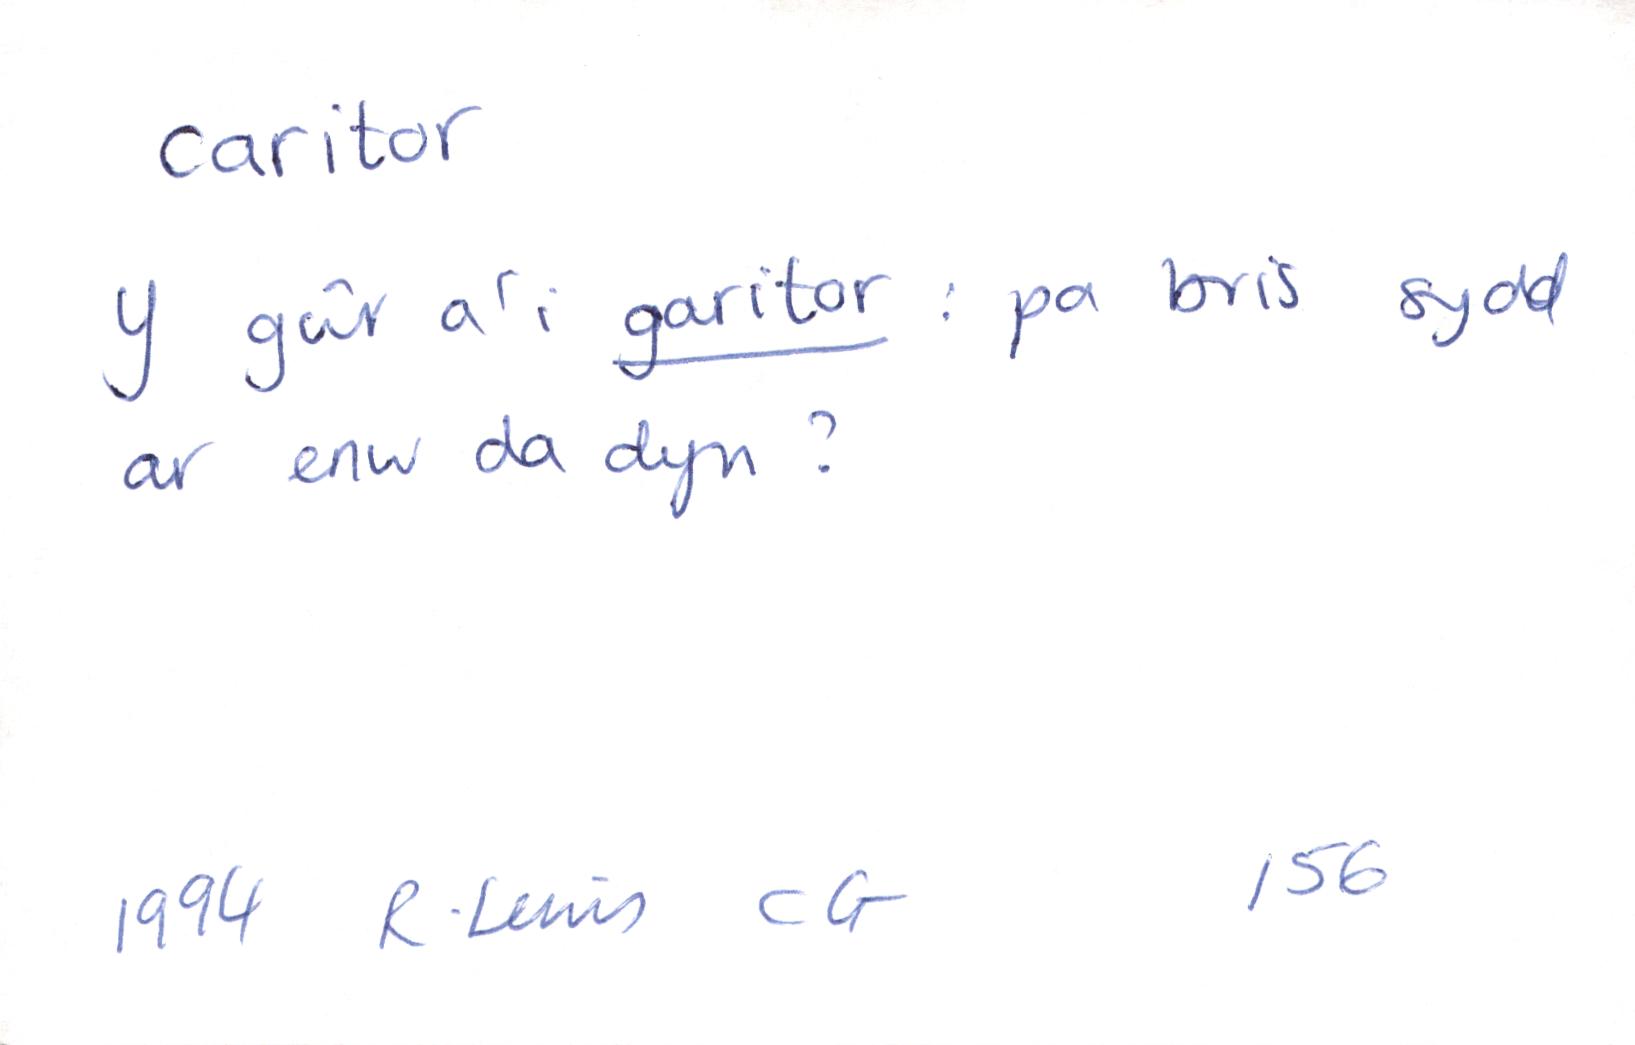 caritor
Y gŵr a'i garitor : pa bris sydd
ar enw da dyn ?
1994 R. Lewis CG 156